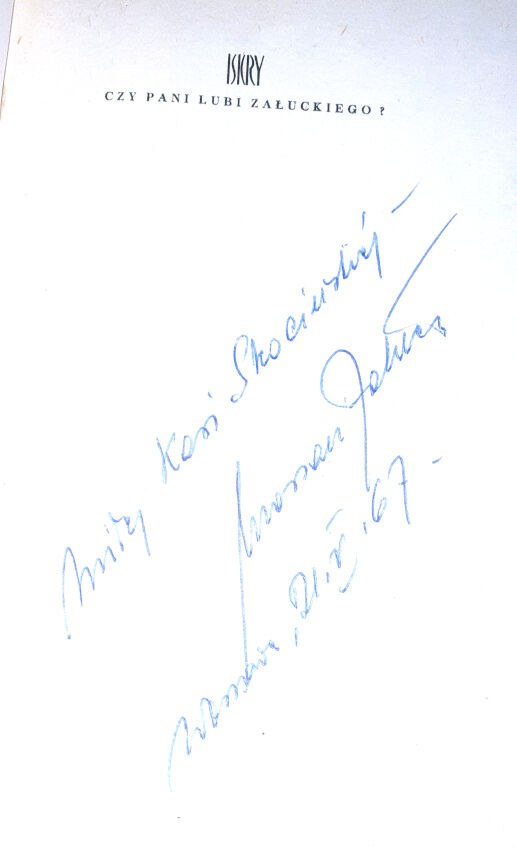 ISKRY
CZY PANI LUBI ZAŁUCKIEGO ?
Miłej Kasi Skocińskiej –
Marian Załucki
Warszawa, 21.V.67 –